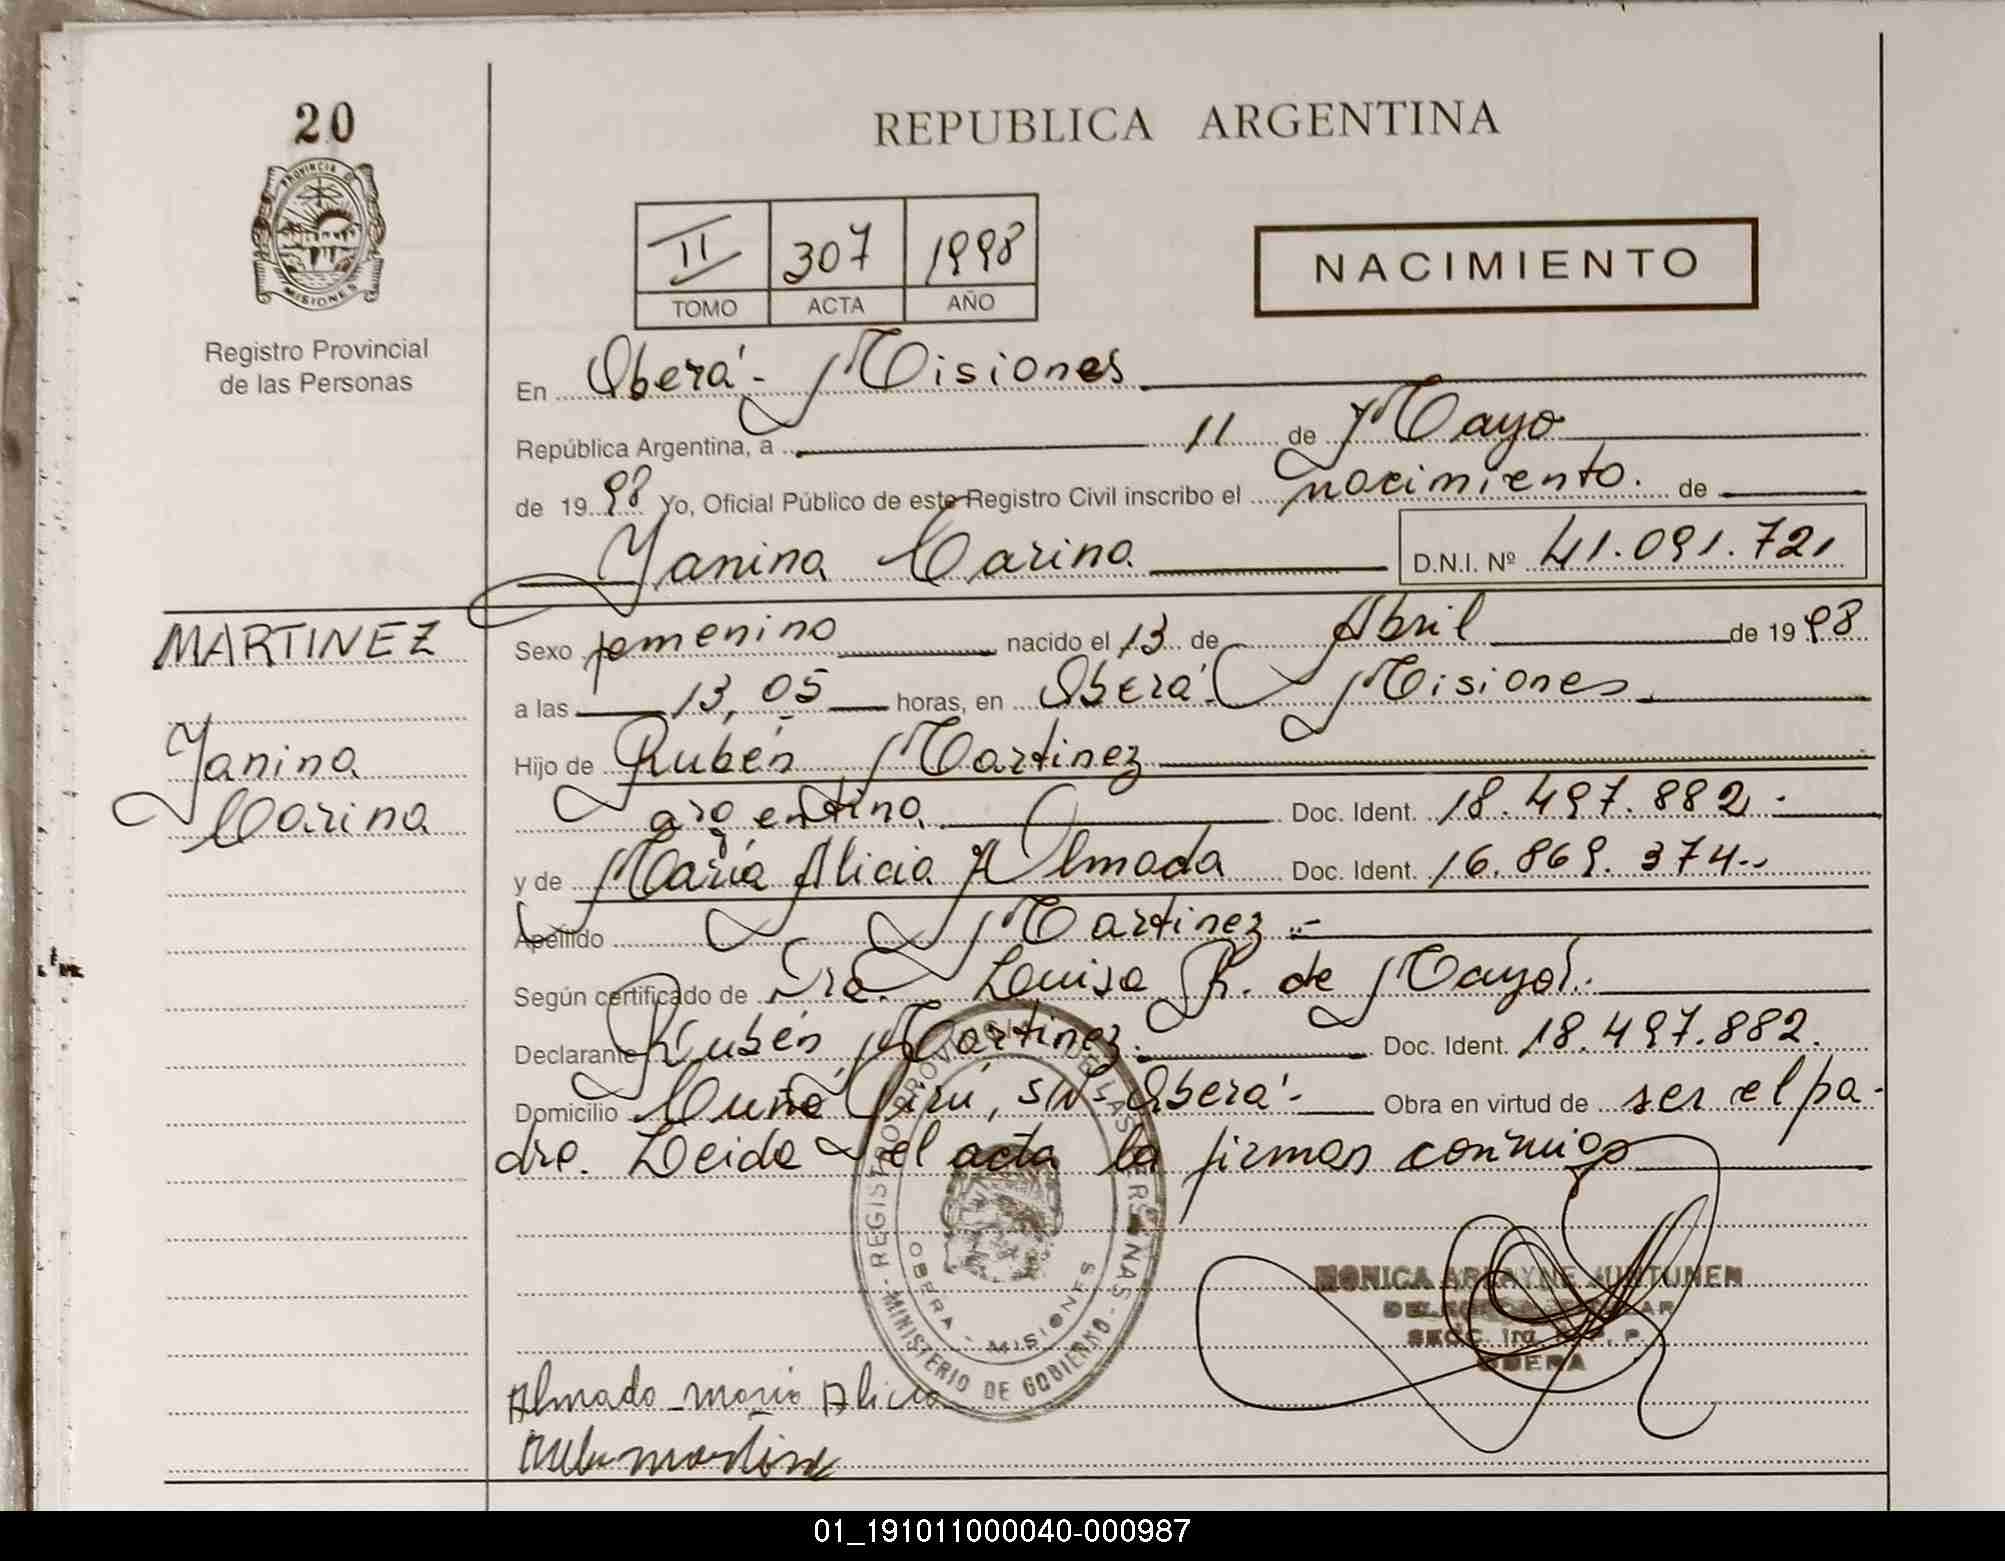 20
PROVINCIA D
MISIONES
Registro Provincial
de las Personas
REPUBLICA ARGENTINA
II 307 1998
TOMO ACTA AÑO
NACIMIENTO
En Oberá - Misiones
República Argentina, a 11 de Mayo
de 1998 Yo, Oficial Público de este Registro Civil inscribo el nacimiento. de
Yanina Carina D.N.I. Nº 41.091.721
MARTINEZ
Yanina
Carina
Sexo femenino nacido el 13 de Abril de 1998
a las 13,05 horas, en Oberá - Misiones
Hijo de Rubén Martinez
argentina Doc. Ident. 18.497.882.-
y de María Alicia Almada Doc. Ident. 16.869.374.-
Apellido Martinez.-
Según certificado de Dra. Luisa R. de Mayol.
Declarante Rubén Martinez. Doc. Ident. 18.497.882.
Domicilio Cuña Pirú, s/n- Oberá- Obra en virtud de ser el pa-
dre. Leida el acta la firman conmigo
REGISTRO PROVINCIAL DE LAS PERSONAS - MINISTERIO DE GOBIERNO -
OBERA - MISIONES
MONICA
SECC. 1ra. R. P. P.
OBERA
Almada Maria Alicia
01_191011000040-000987